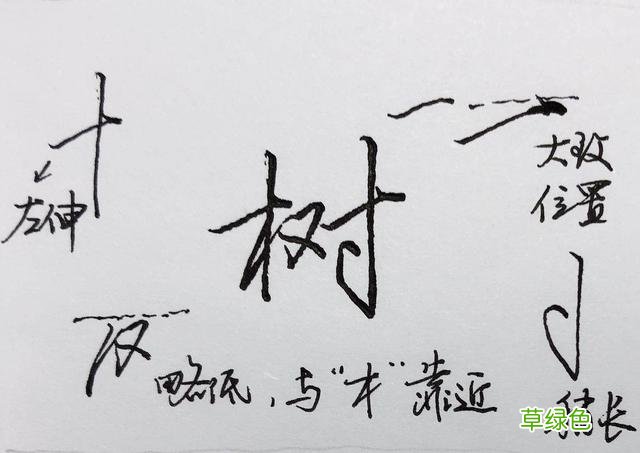 树
左伸
大致
位置
略低，与“木”靠近
稍长
草绿色